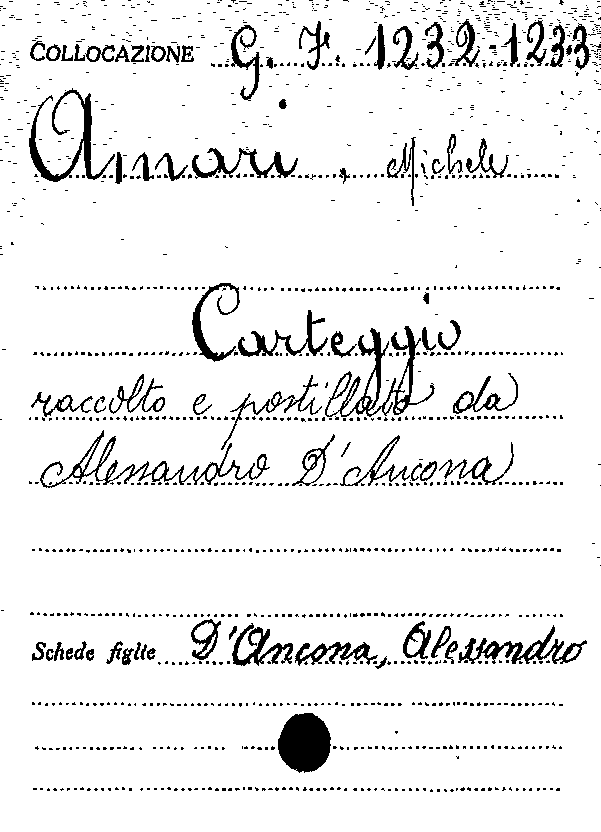 COLLOCAZIONE G. F. 1232-1233
Amari, Michele
Carteggio
raccolto e postillato da
Alessandro D'Ancona
Schede figlie D'Ancona, Alessandro